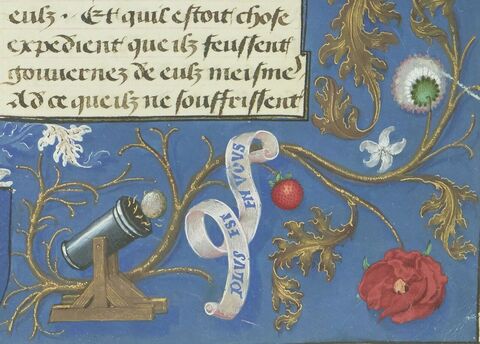 eulz . Et quil estoit chose
expedient que ilz feussent
gouvernez de eulz meisme
Ad ce que ilz ne souffrissent
PLUS EST EN VOUS